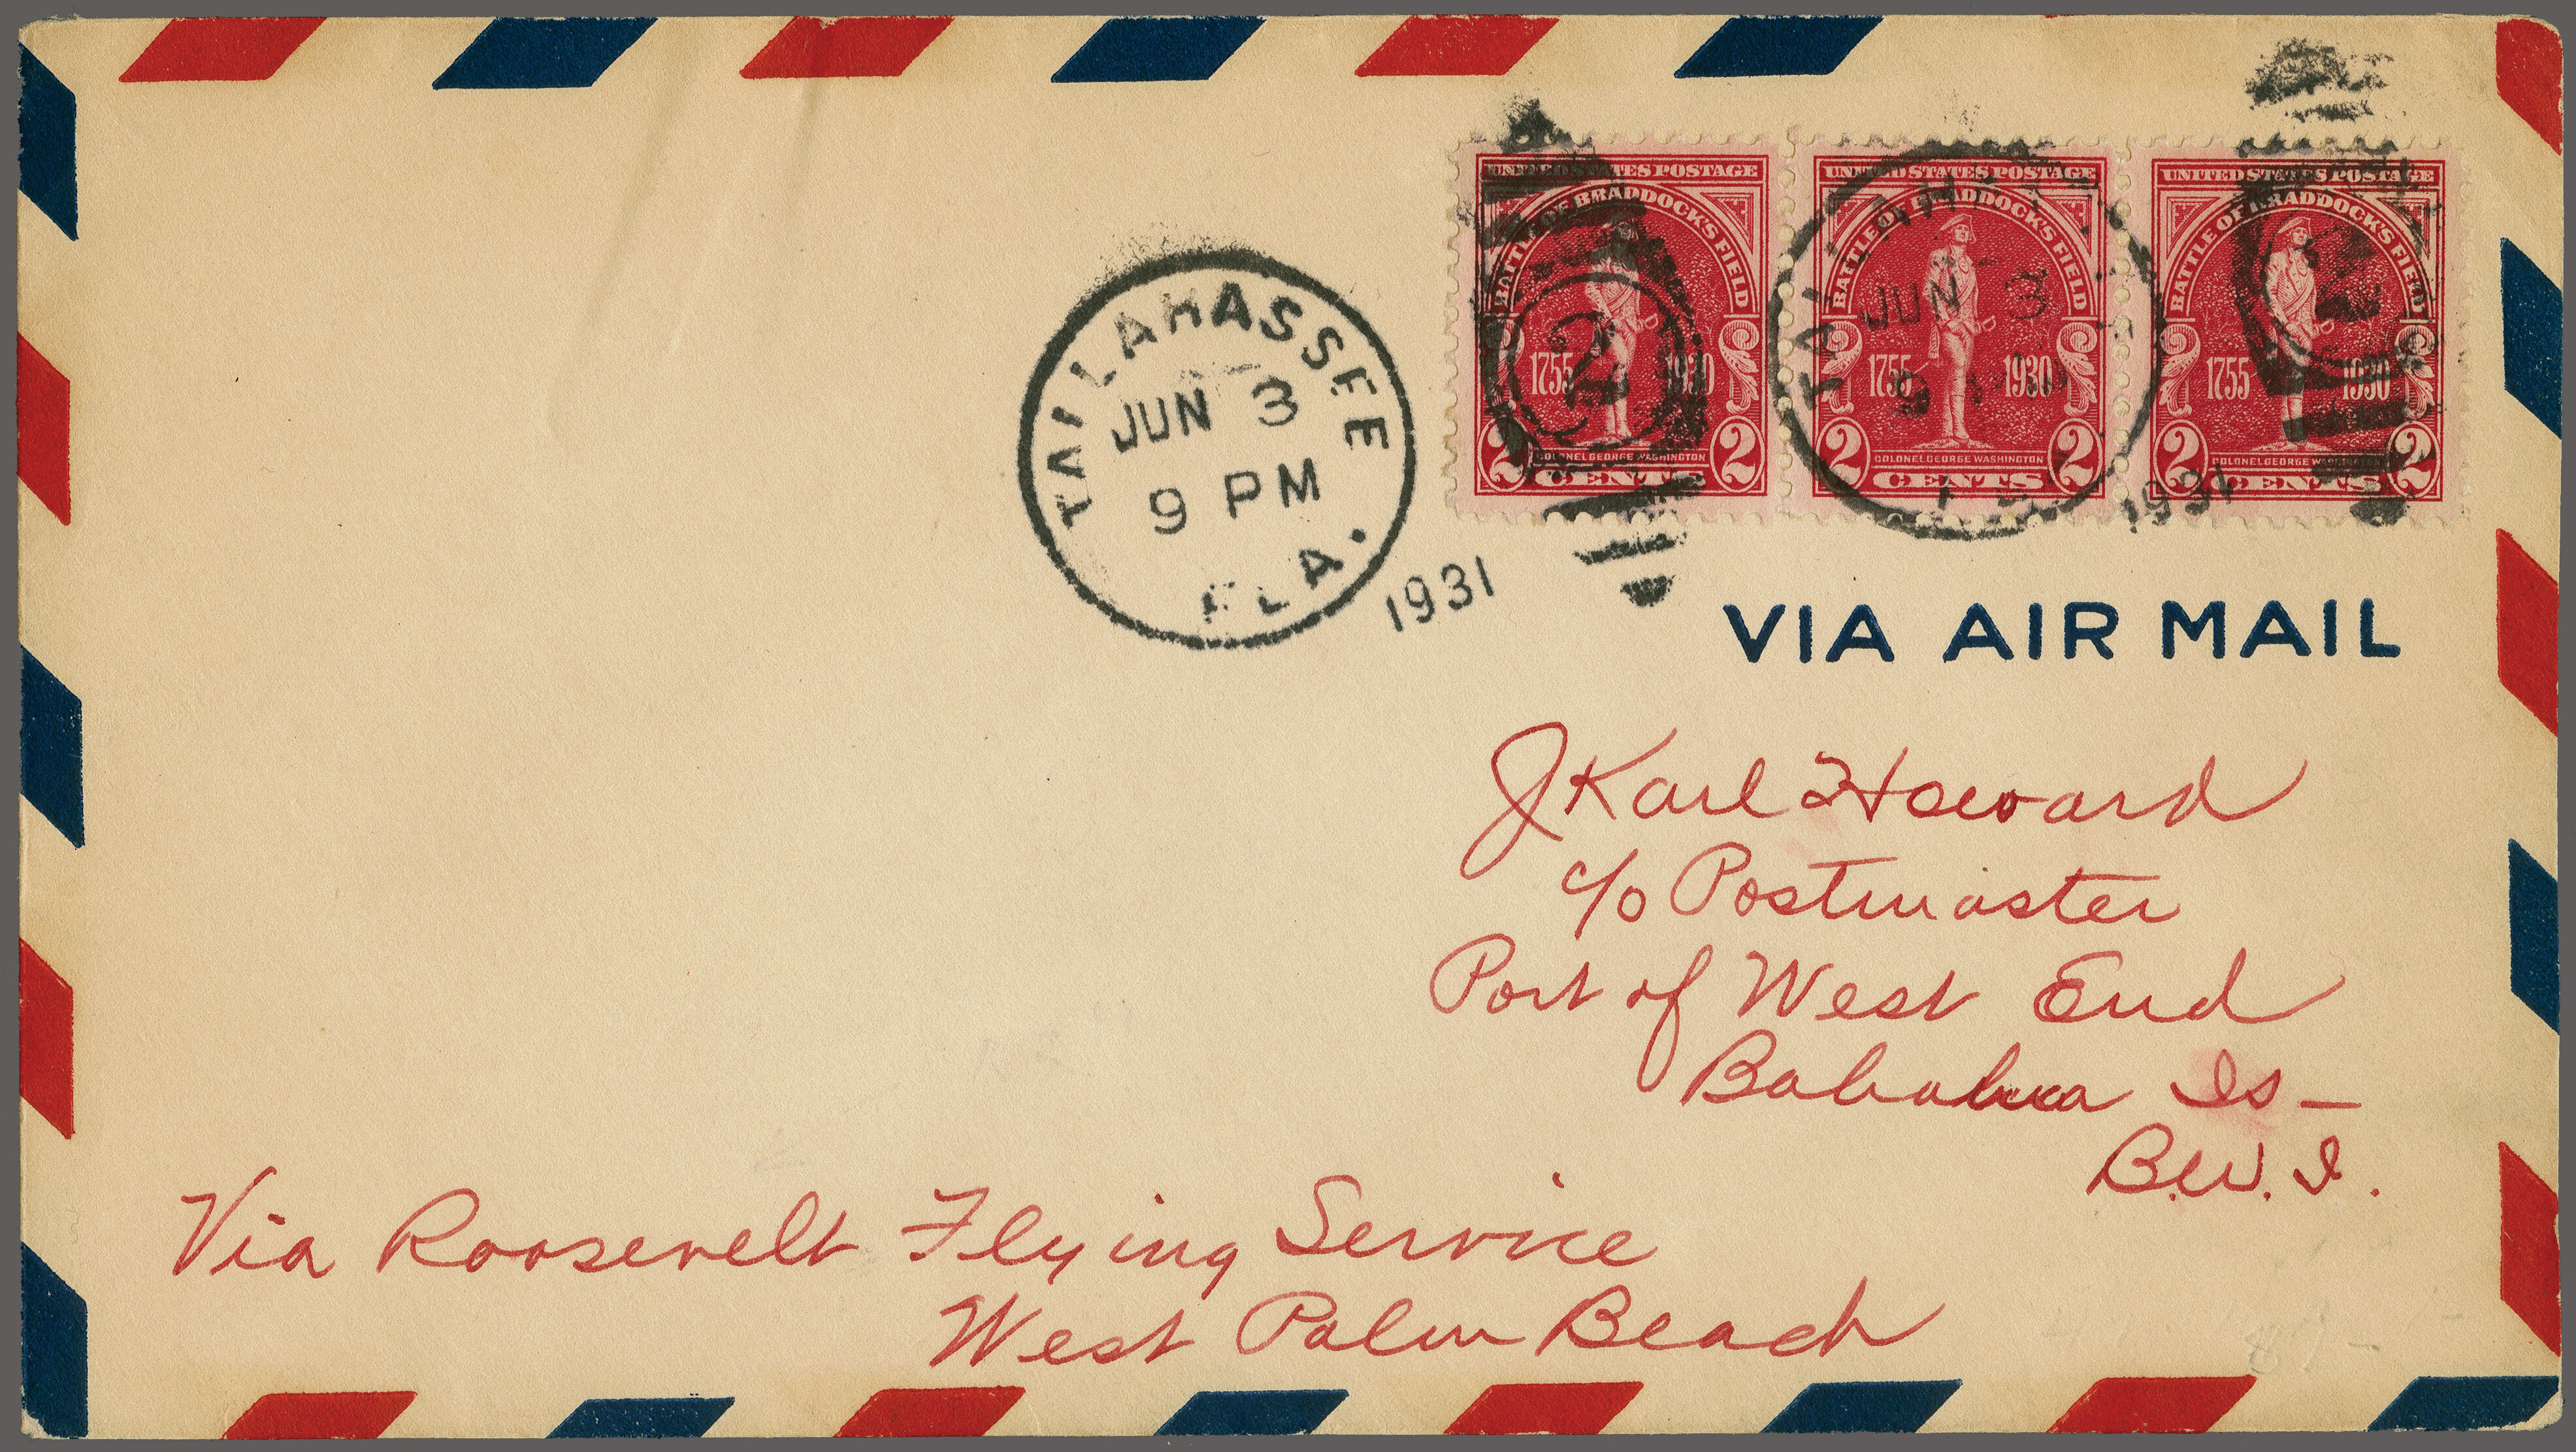 UNITED STATES POSTAGE
BATTLE OF BRADDOCK'S FIELD
1755 1930
2 2
COLONEL GEORGE WASHINGTON
CENTS
UNITED STATES POSTAGE
BATTLE OF BRADDOCK'S FIELD
1755 1930
2 2
COLONEL GEORGE WASHINGTON
CENTS
UNITED STATES POSTAGE
BATTLE OF BRADDOCK'S FIELD
1755 1930
2 2
COLONEL GEORGE WASHINGTON
CENTS
2
JUN 3
9
1931
TALLAHASSEE
JUN 3
9 PM
FLA.
1931
VIA AIR MAIL
J Karl Howard
c/o Postmaster
Port of West End
Is –
B.W.I.
Via Roosevelt Flying Service
West Palm Beach